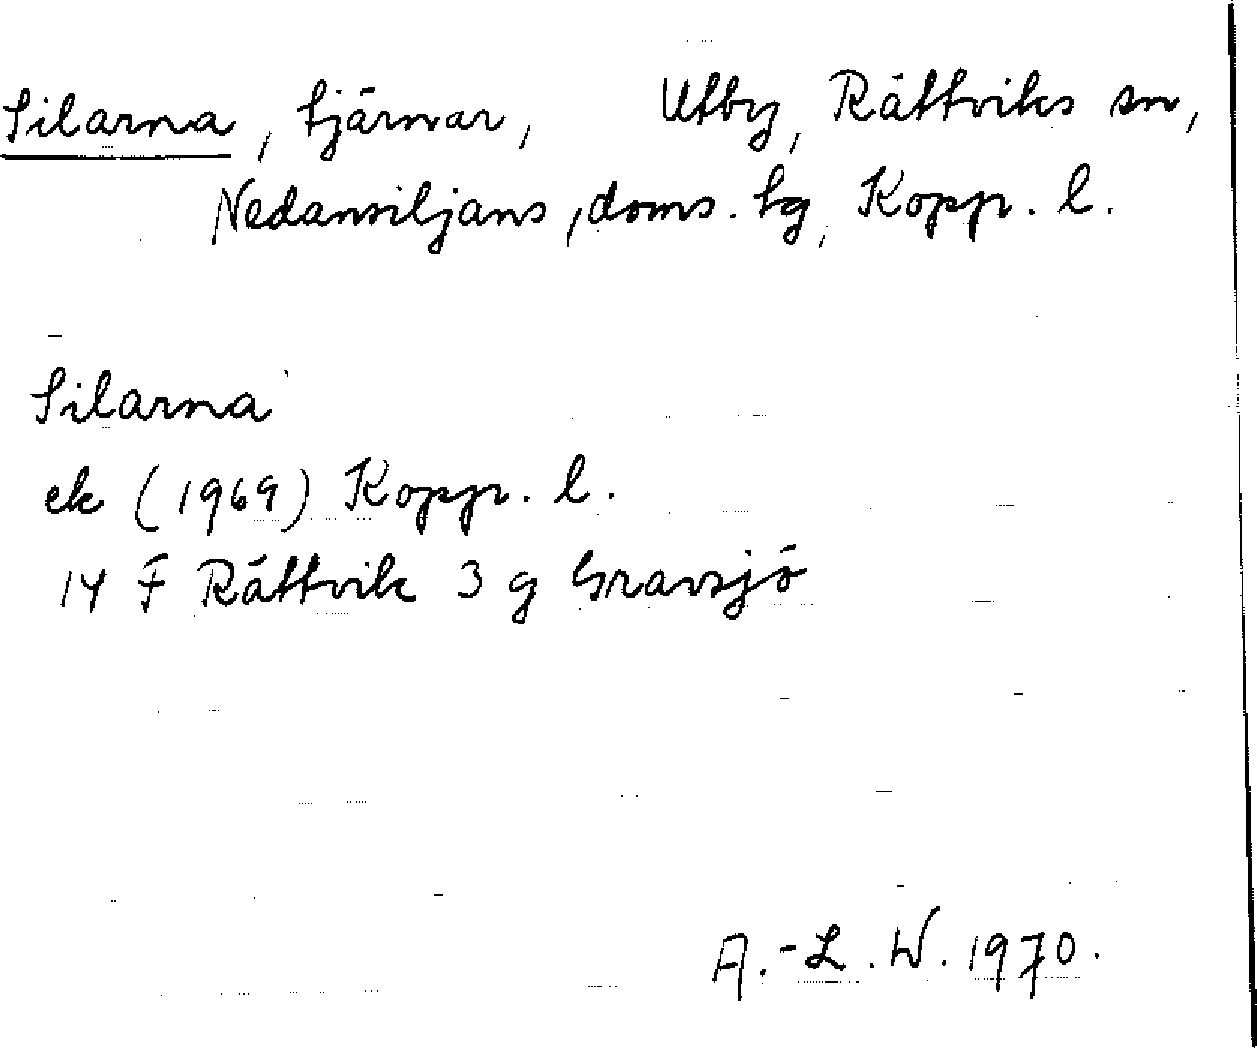 Silarna, tjärnar, Utby, Rättviks sn,
Nedansiljans, doms. tg, Kopp. l.
Silarna
ek (1969) Kopp. l.
14 F Rättvik 3 g Gravsjö
A.-L. W. 1970.